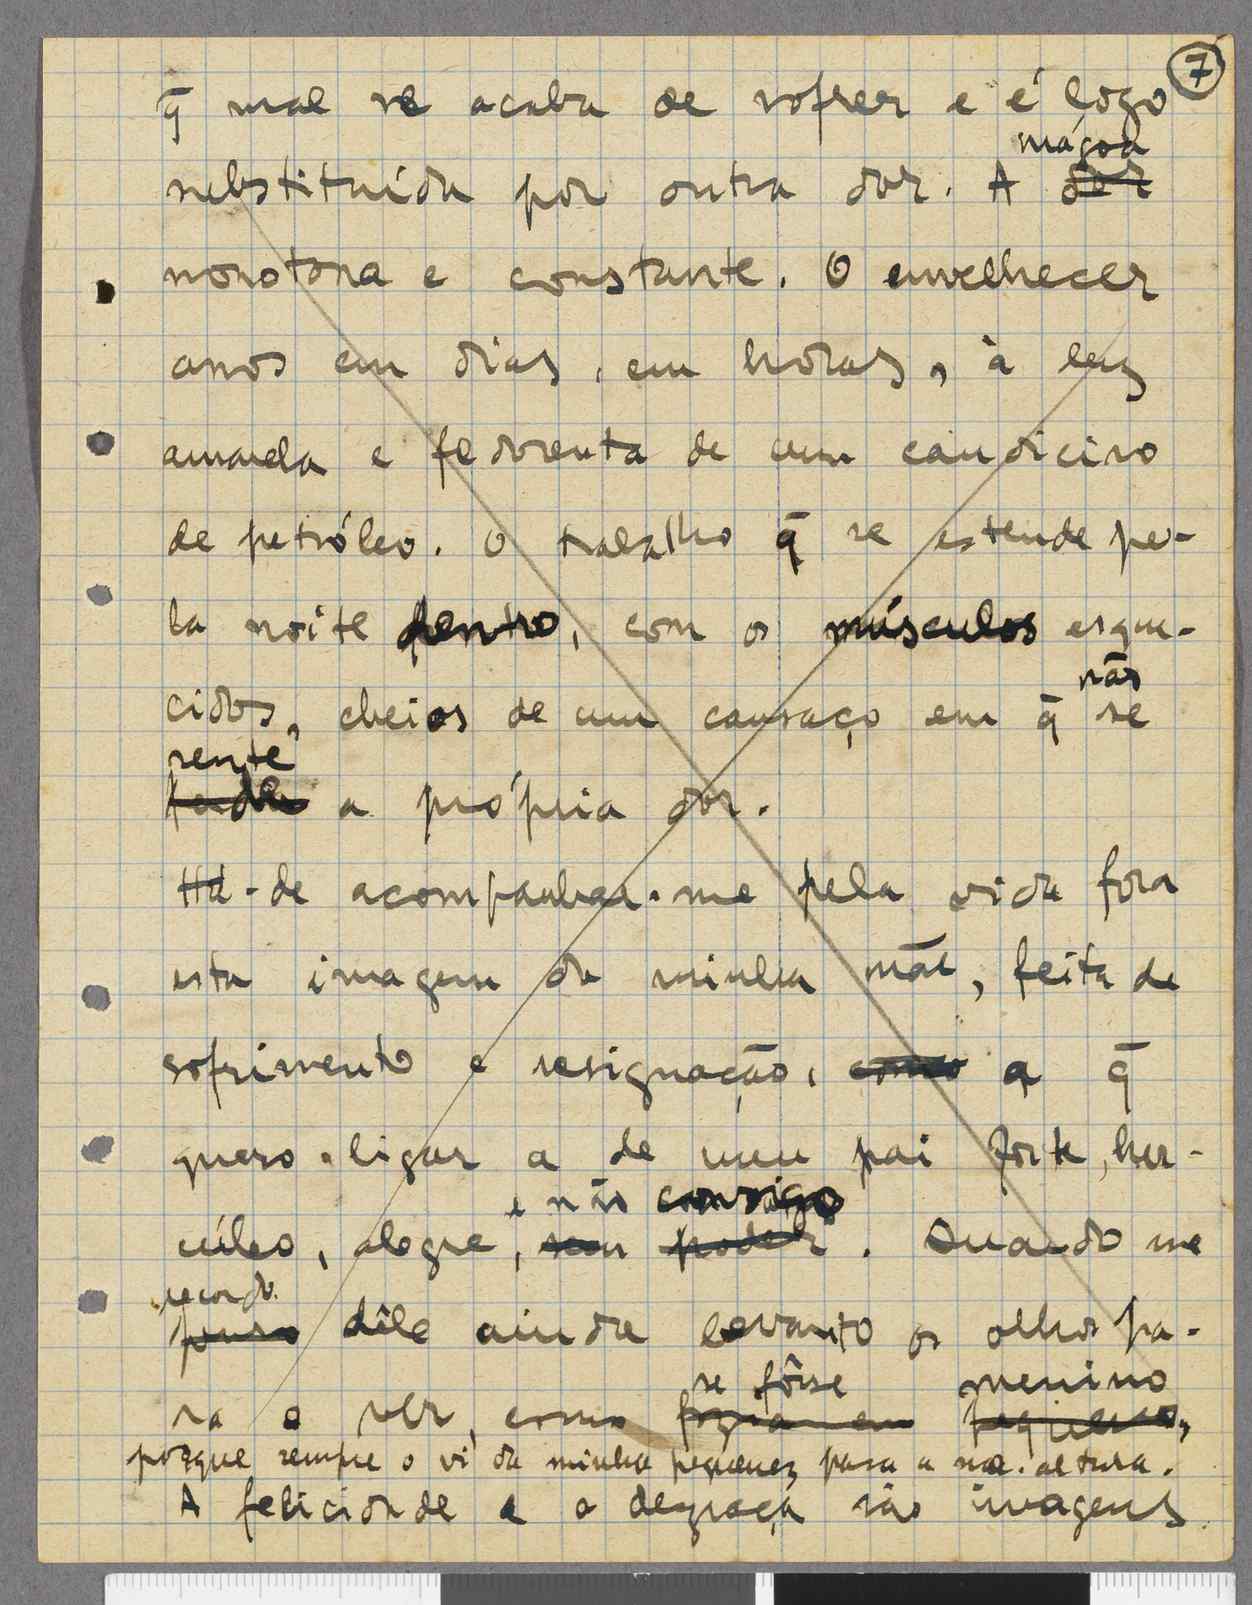 7
q̄ mal se acaba de sofrer e é logo
mágoa
substituída por outra dor. A dor
monotona e constante. O envelhecer
anos em dias, em horas, à luz
amarela e fedorenta de um candieiro
de petróleo. O trabalho q̄ se estende pe-
la noite dentro, com os músculos esque-
não
cidos, cheios de um cansaço em q̄ se
sente
a própria dor.
Há-de acompanhar-me pela vida fora
esta imagem da minha mãe, feita de
sofrimento e resignação, como a q̄
quero ligar a de meu pai forte, her-
e não consigo
cúleo, alegre, sem poder. Quando me
recordo
penso dêle ainda levanto os olhos pa-
se fôsse menino
ra o ver, como fazia em pequeno,
porque sempre o vi da minha pequenez para a sua altura.
A felicidade e a desgraça são imagens